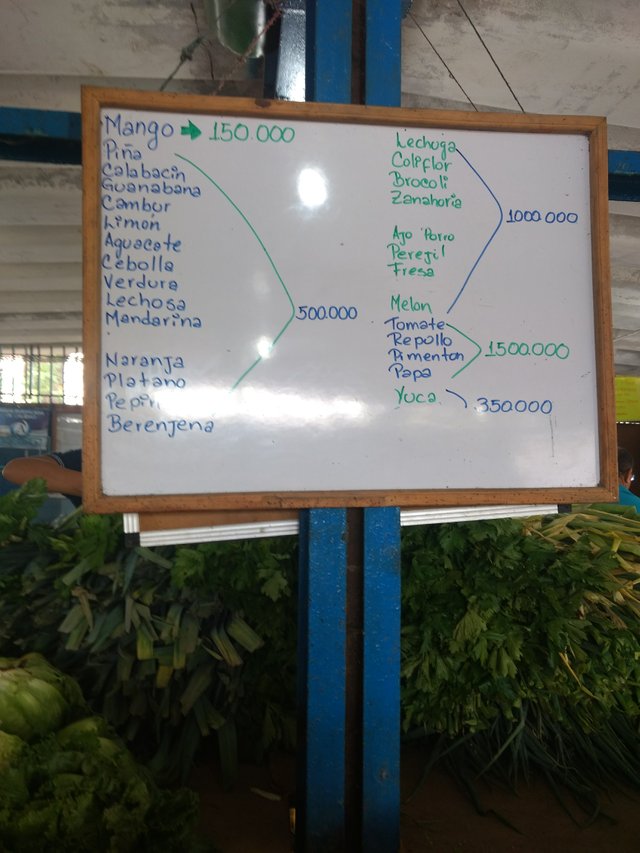 Mango → 150.000
Piña
Calabacin
Guanabana
Cambur
Limón
Aguacate
Cebolla
Verdura
Lechosa
Mandarina
500.000
Naranja
Platano
Berenjena
Lechuga
Coliflor
Brocoli
Zanahoria
1000.000
Ajo Porro
Perejil
Fresa
Melon
Tomate
Repollo
Pimenton
Papa
1500.000
Yuca
350.000